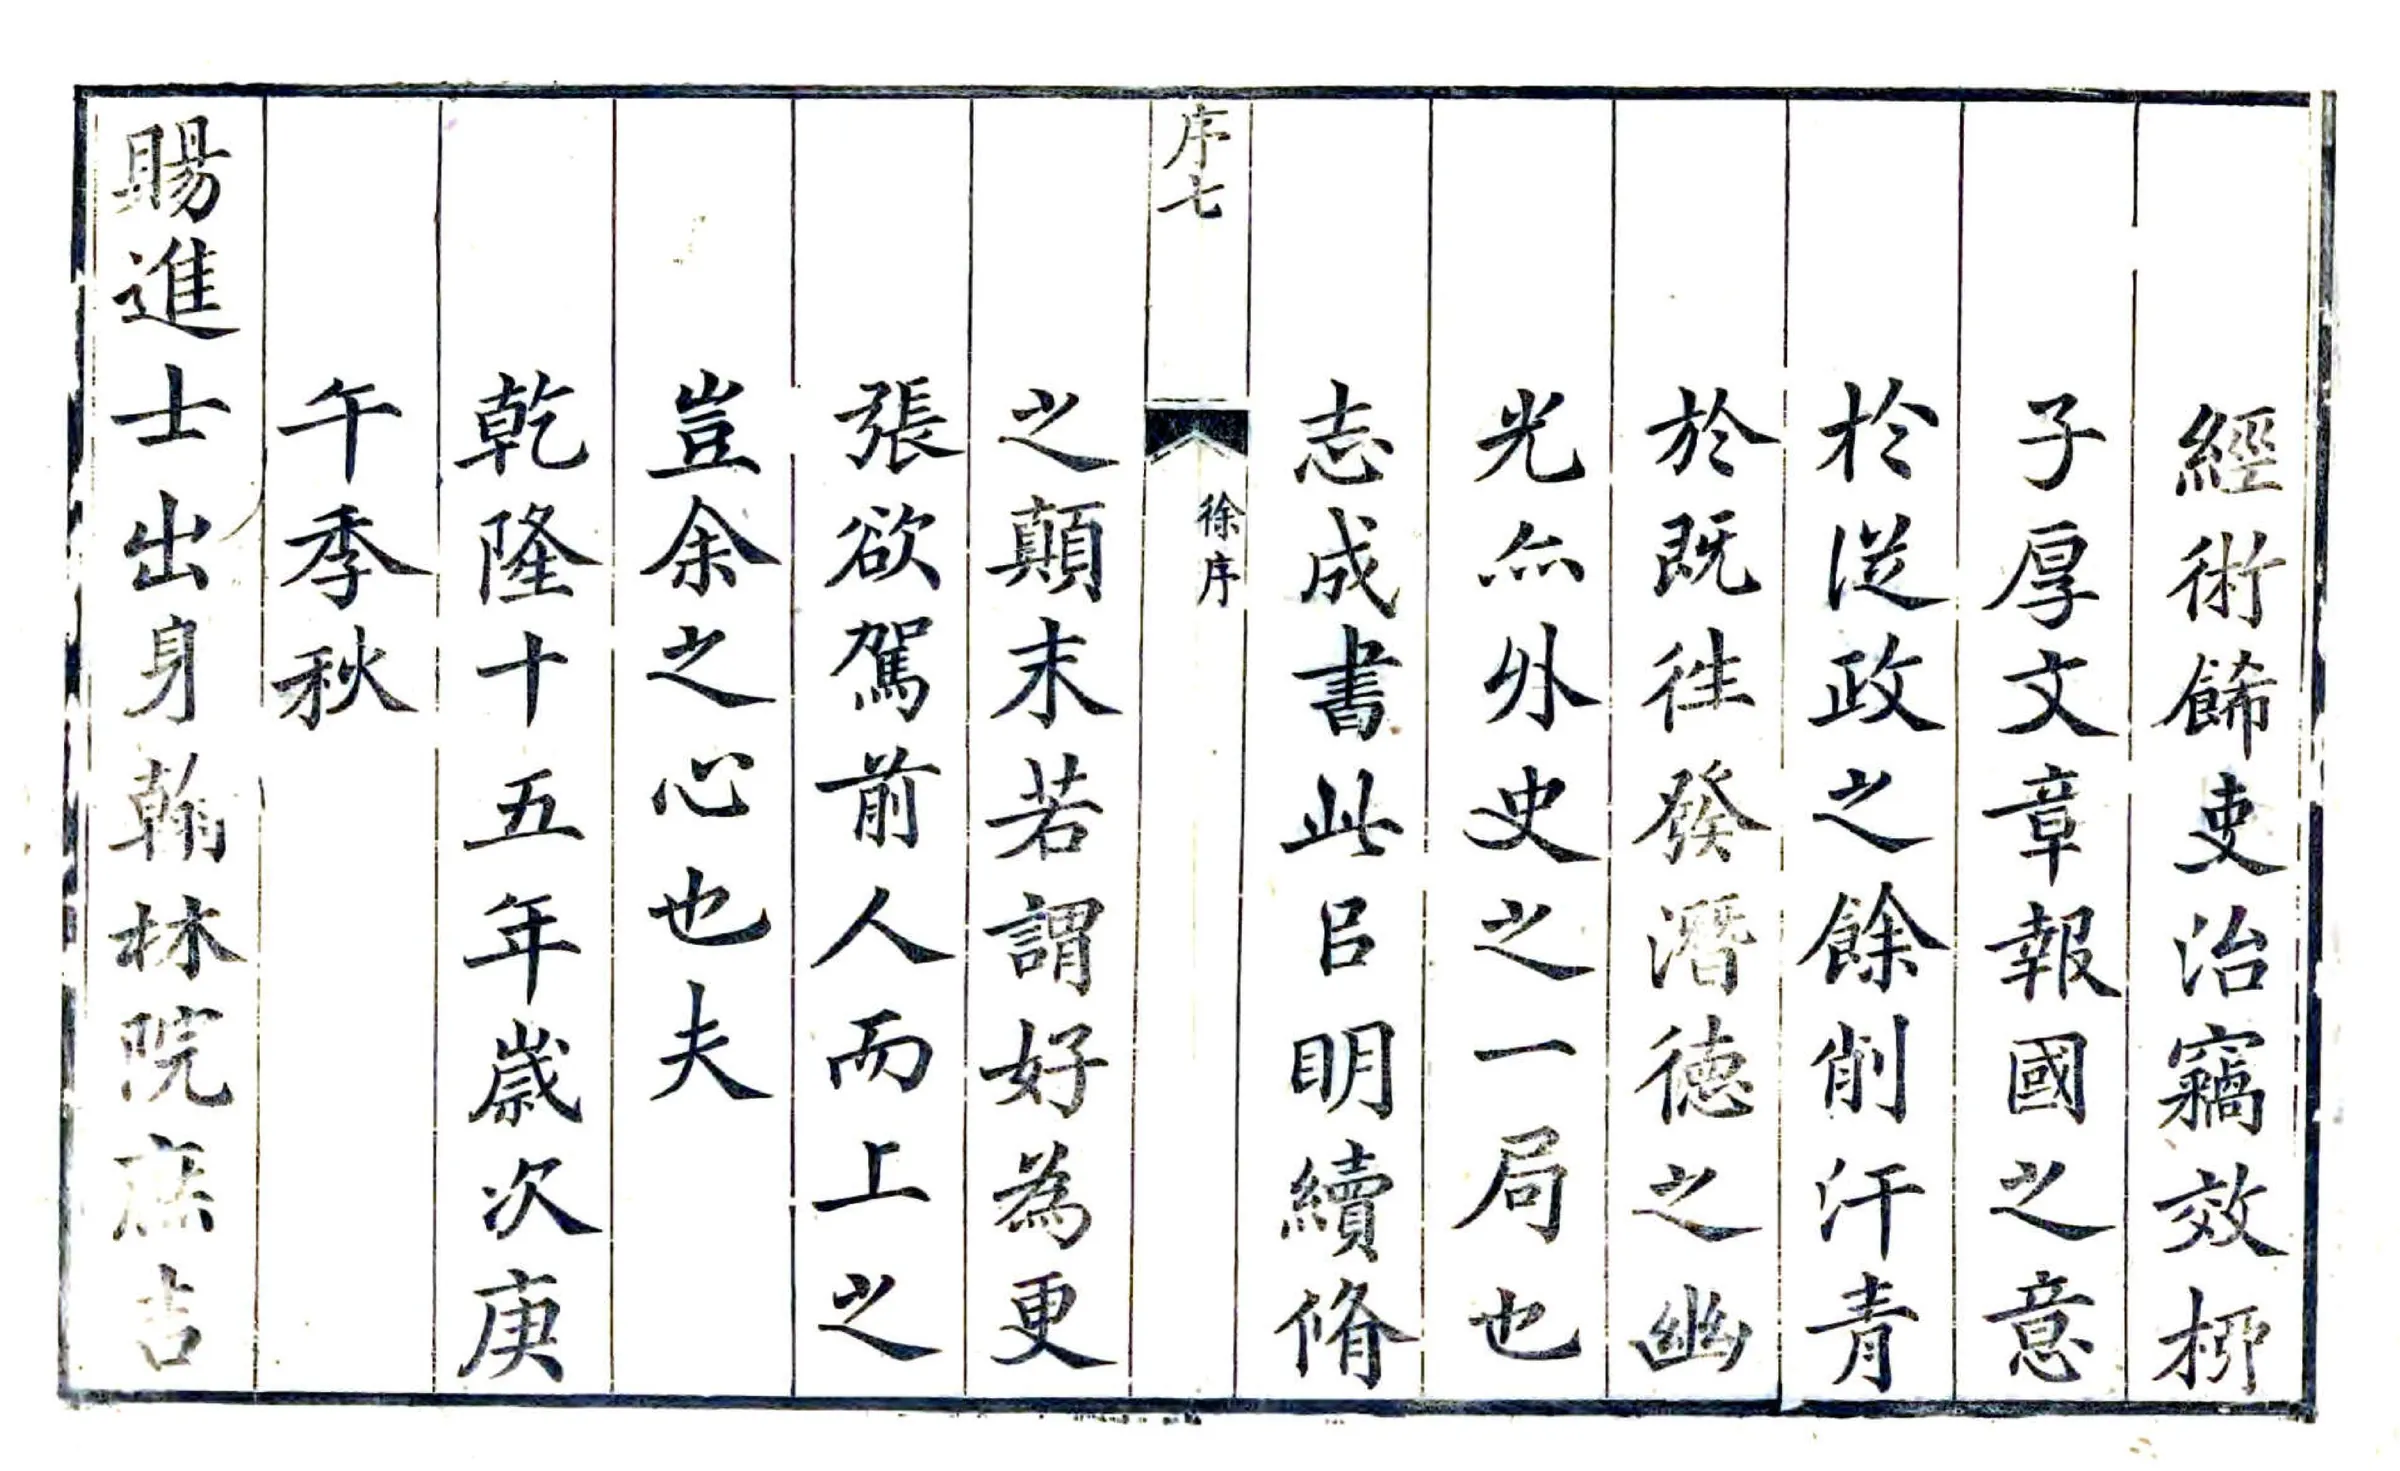 經術餙吏治竊效柳
子厚文章報國之意
於從政之餘削汗青
於既徃發潛德之幽
光亦外史之一局也
志成書此㠯明續脩
序七
徐序
之顛末若謂好為更
張欲駕前人而上之
豈余之心也夫
乾隆十五年歲次庚
午季秋
賜進士出身翰林院庶吉